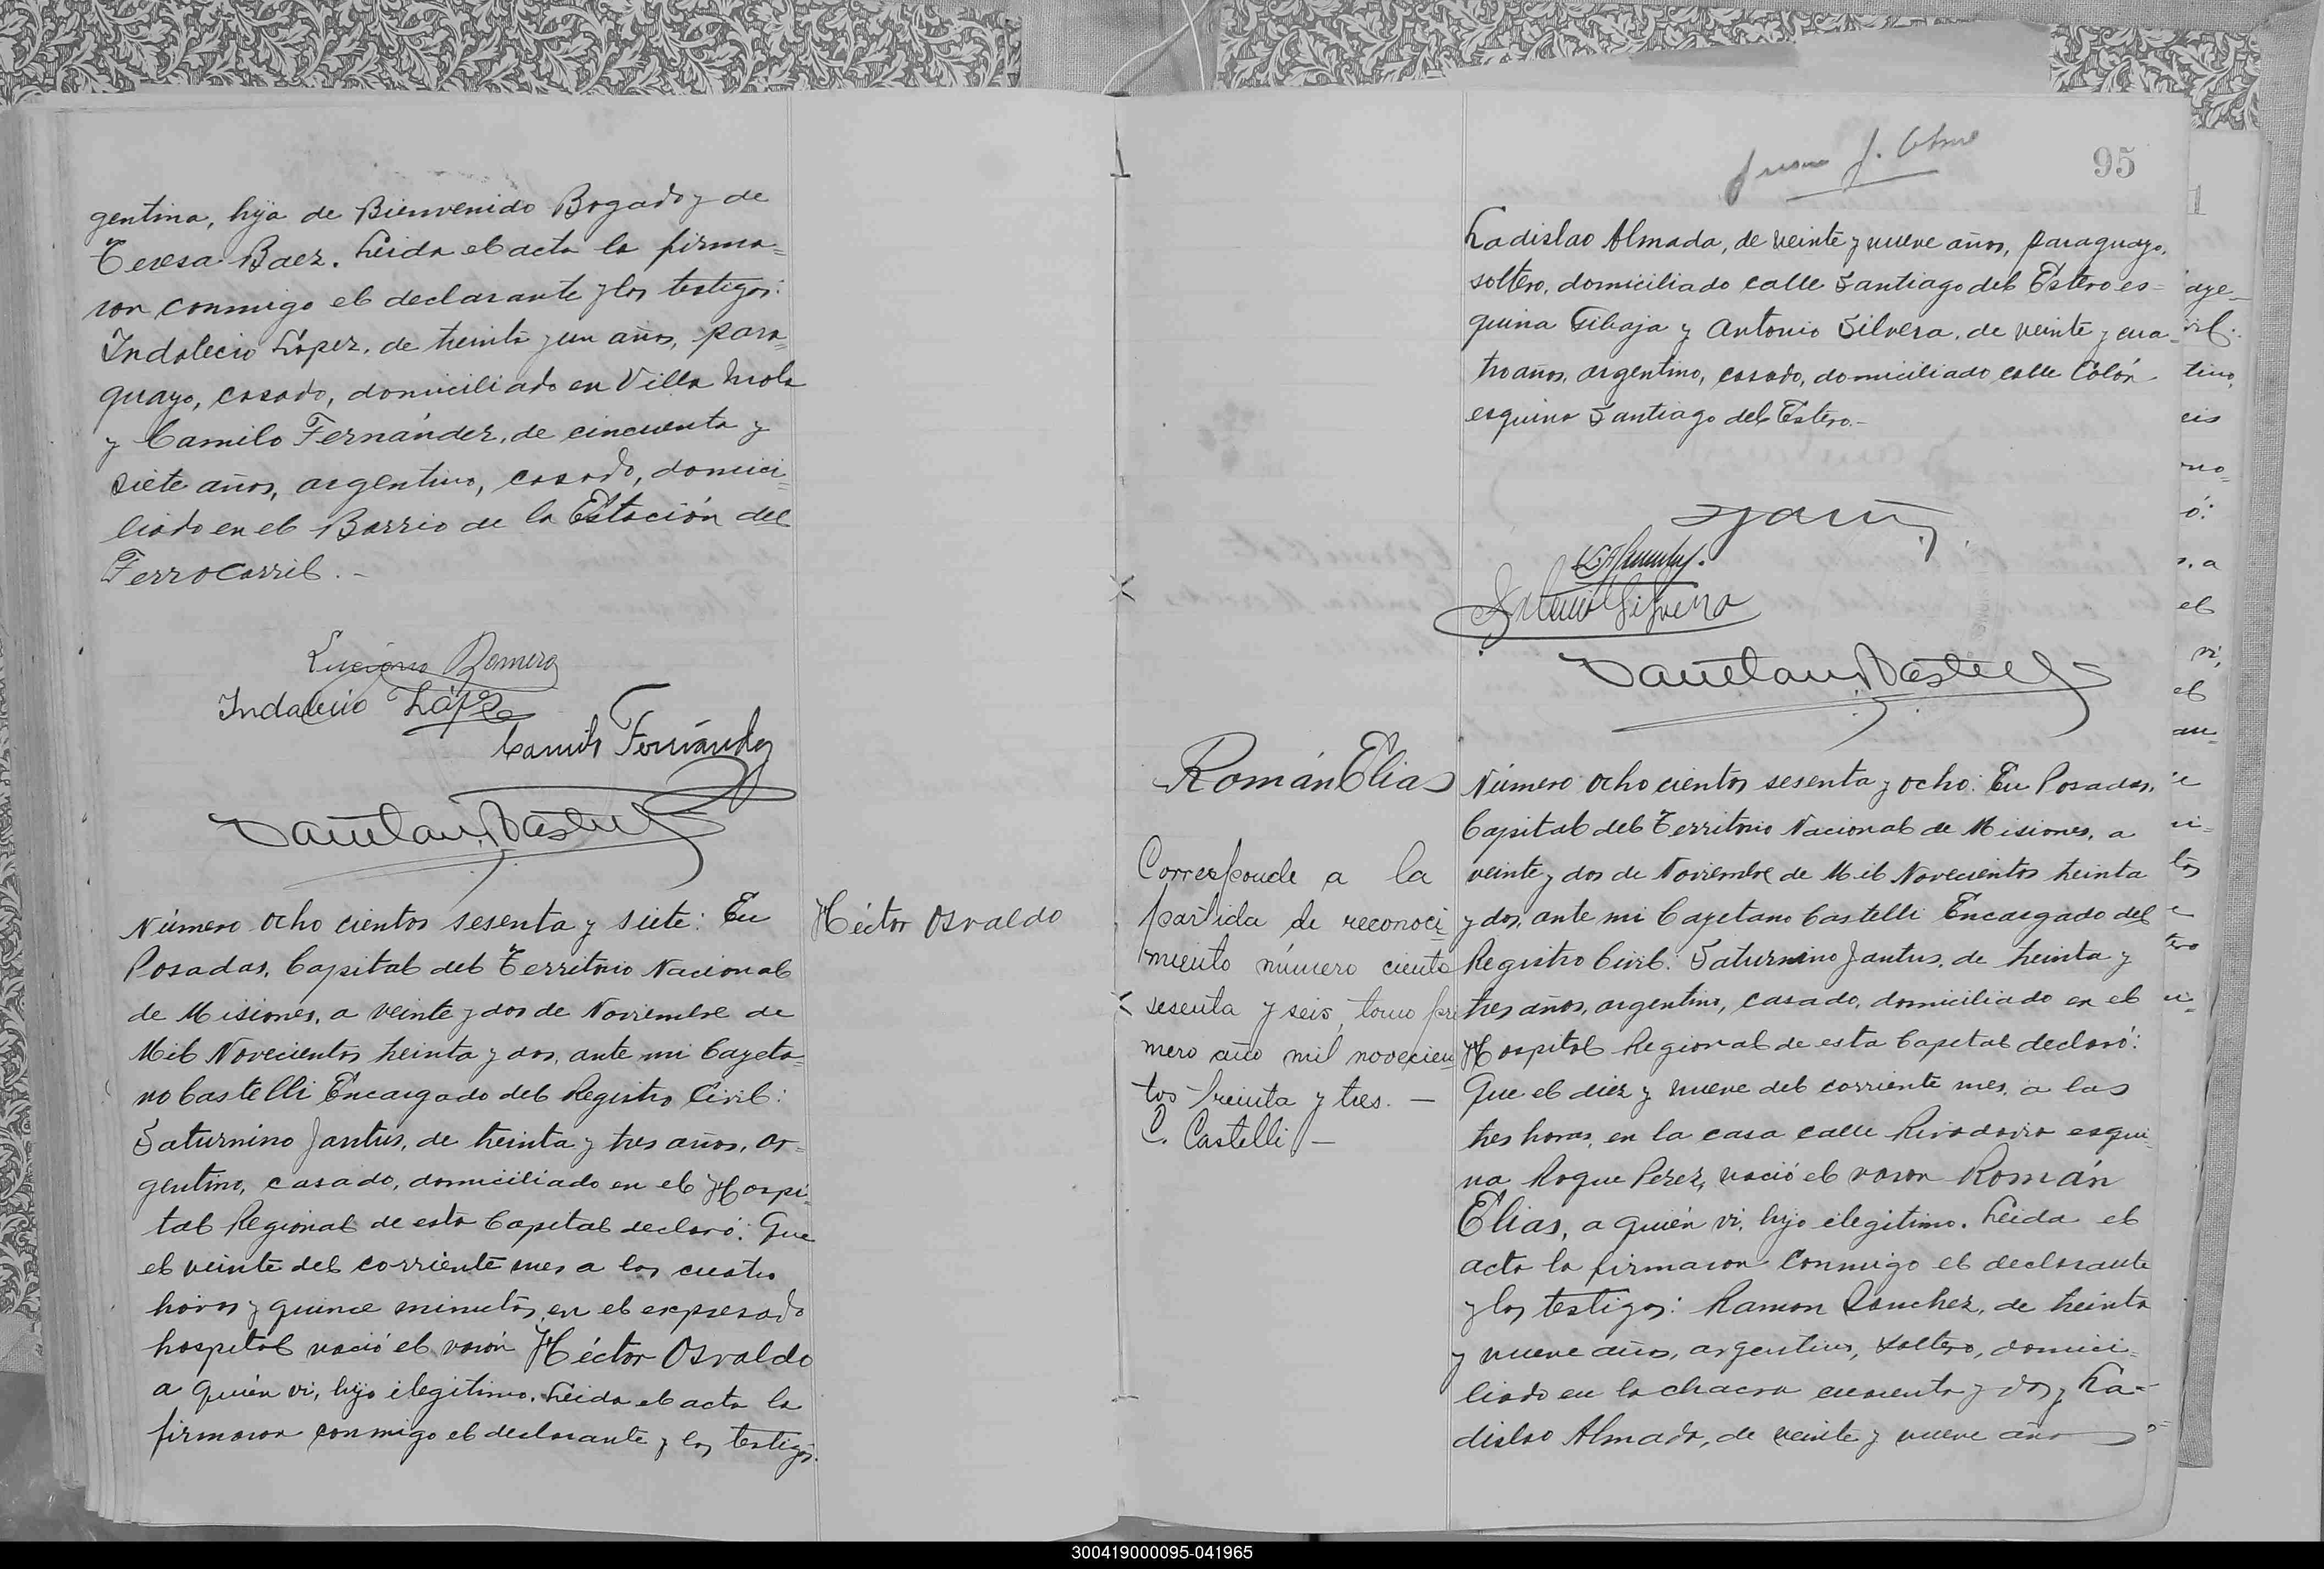 gentina, hija de Bienvenido Bogado y de
Teresa Baez. Leida el acta la firma=
ron conmigo el declarante y los testigos:
Indalecio López, de treinta y un años, para=
guayo, casado, domiciliado en Villa Mola
y Camilo Fernández, de cincuenta y
siete años, argentino, casado, domici=
liado en el Barrio de la Estación del
Ferrocarril.-
Luciano Romero
Indalecio López
Camilo Fernández
Cayetano Castelli
Número ocho cientos sesenta y siete: En
Posadas, Capital del Territorio Nacional
de Misiones, a veinte y dos de Noviembre de
Mil Novecientos treinta y dos, ante mi Cayeta=
no Castelli Encargado del Registro Civil:
Saturnino Jantus, de treinta y tres años, ar=
gentino, casado, domiciliado en el Hospi=
tal Regional de esta Capital declaró: Que
el veinte del corriente mes a las cuatro
horas y quince minutos, en el expresado
hospital nació el varón Héctor Osvaldo
a quién vi, hijo ilegitimo. Leida el acta la
firmaron conmigo el declarante y los testigos:
Héctor Osvaldo
95
Ladislao Almada, de veinte y nueve años, paraguayo,
soltero, domiciliado calle Santiago del Estero es=
quina Tibaja y Antonio Silvera, de veinte y cua=
tro años, argentino, casado, domiciliado calle Colón
esquina Santiago del Estero.-
Antonio Silvera
Cayetano Castelli
Román Elias
Corresponde a la
partida de reconoci=
miento número ciento
sesenta y seis, tomo pri
mero año mil novecien
tos treinta y tres. —
C. Castelli —
Número ocho cientos sesenta y ocho: En Posadas,
Capital del Territorio Nacional de Misiones, a
veinte y dos de Noviembre de Mil Novecientos treinta
y dos, ante mi Cayetano Castelli Encargado del
Registro Civil: Saturnino Jantus, de treinta y
tres años, argentino, casado, domiciliado en el
Hospital Regional de esta Capital declaró:
Que el diez y nueve del corriente mes, a las
tres horas, en la casa calle Rivadavia esqui=
na Roque Pérez, nació el varon Román
Elias, a quién vi, hijo ilegitimo. Leida el
acta la firmaron conmigo el declarante
y los testigos: Ramon Sanchez, de treinta
y nueve años, argentino, soltero, domici=
liado en la chacra cuarenta y dos y La=
dislao Almada, de veinte y nueve años
300419000095-041965